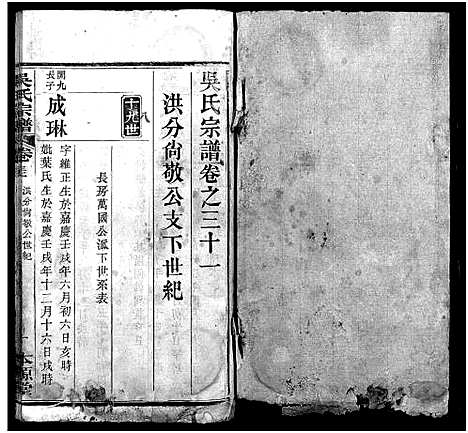 吳氏宗譜卷之三十一
洪分尙敬公支下世紀
長房萬國公派下世系表
十九世
開九
長子
成琳
字維正生於嘉慶壬戌年六月初六日亥時
妣葉氏生於嘉慶壬戌年十二月十六日戌時
吳氏宗譜
洪分尙敬公世紀
本源堂